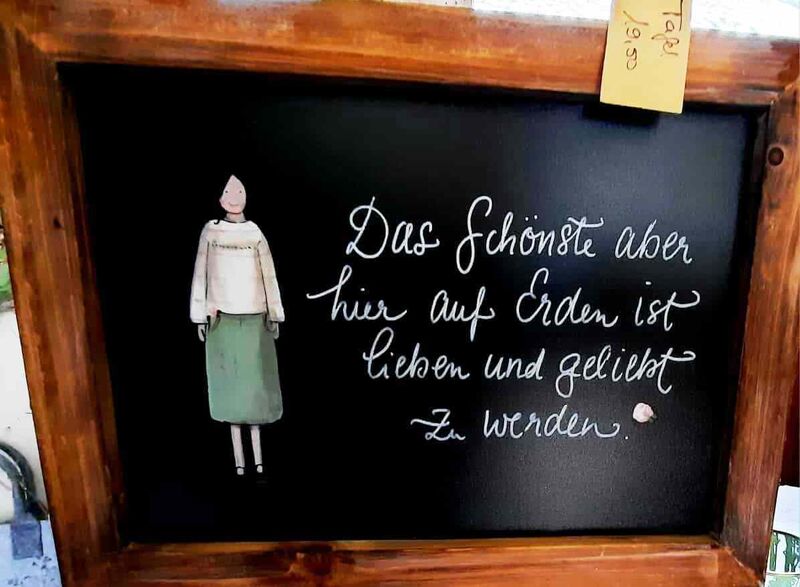 Tafel
19,50
Das Schönste aber
hier auf Erden ist
lieben und geliebt
zu werden.